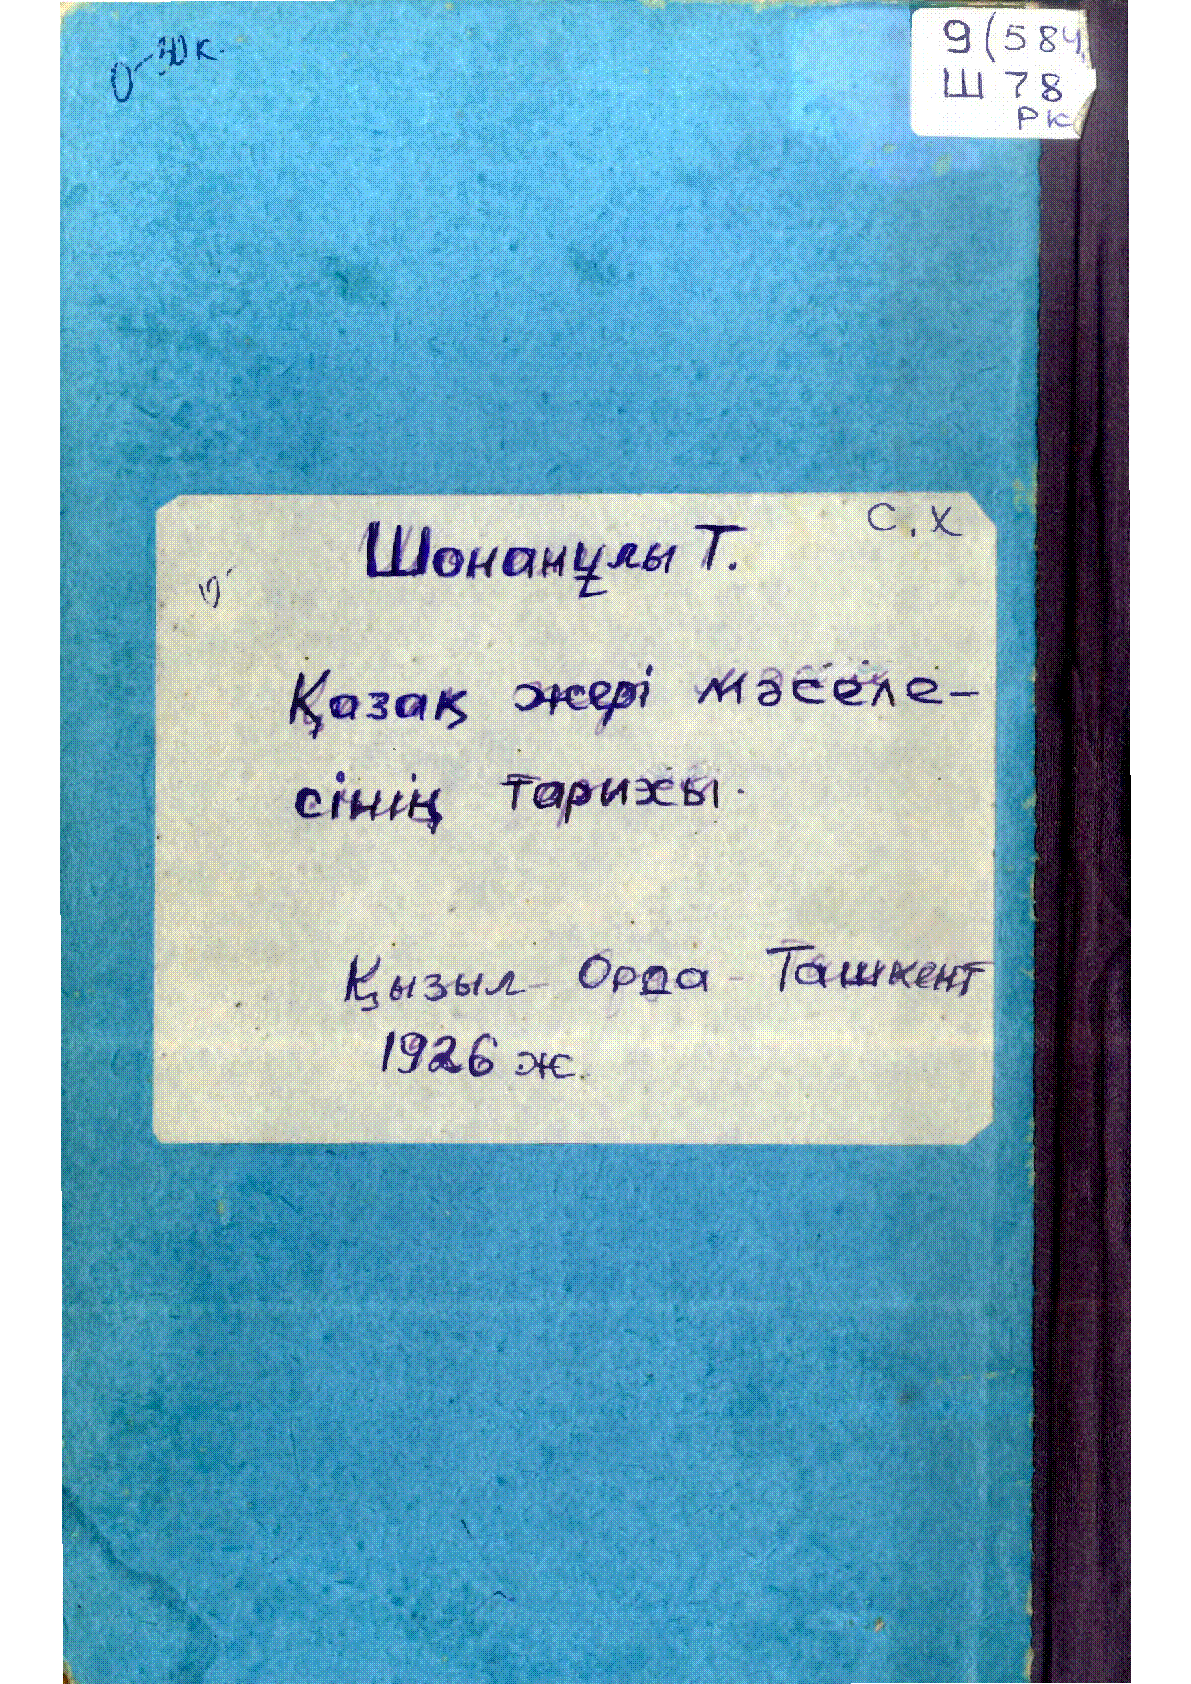 0-30 к.
9(584
Ш 78
РК
С.Х
Шонанұлы Т.
Қазақ жері мәселе-
сінің тарихы.
Қызыл-Орда - Ташкент
1926 ж.